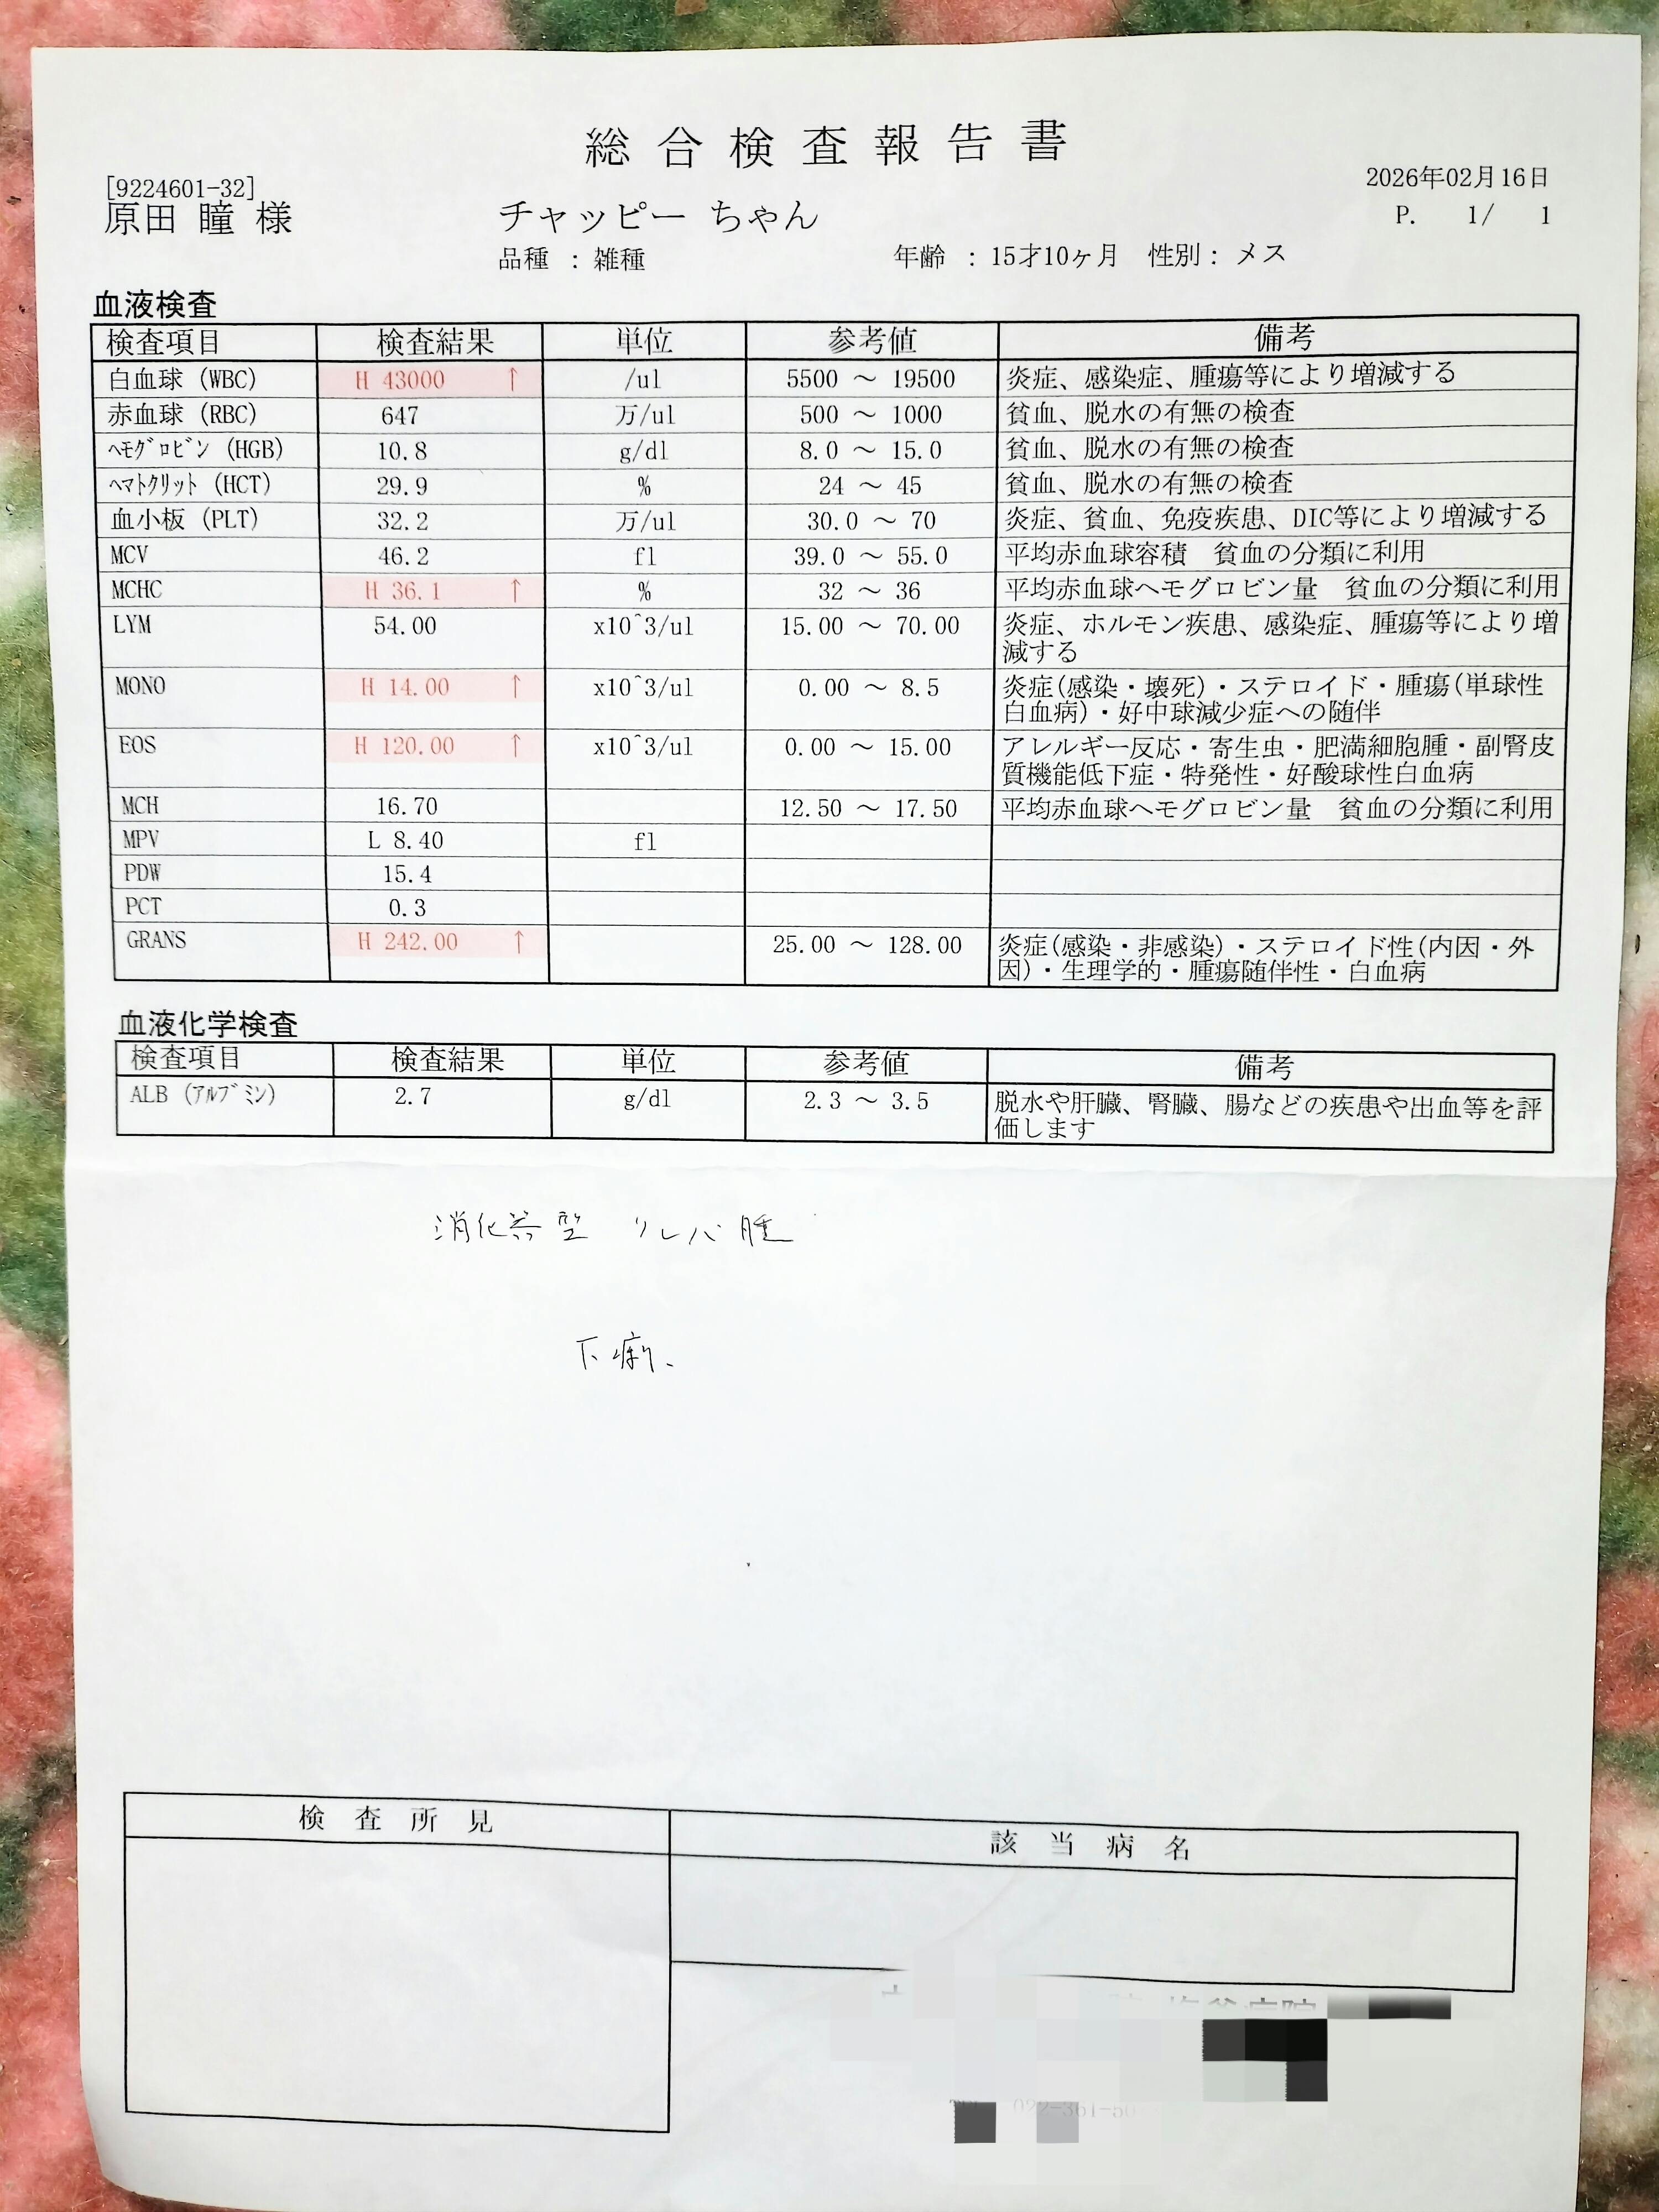 総合検査報告書
[9224601-32]
2026年02月16日
原田 瞳 様 チャッピー ちゃん P. 1/ 1
品種 : 雑種 年齢 : 15才10ヶ月 性別 : メス
血液検査
検査項目 検査結果 単位 参考値 備考
白血球 (WBC) H 43000 ↑ /ul 5500 ～ 19500 炎症、感染症、腫瘍等により増減する
赤血球 (RBC) 647 万/ul 500 ～ 1000 貧血、脱水の有無の検査
ﾍﾓｸﾞﾛﾋﾞﾝ (HGB) 10.8 g/dl 8.0 ～ 15.0 貧血、脱水の有無の検査
ﾍﾏﾄｸﾘｯﾄ (HCT) 29.9 % 24 ～ 45 貧血、脱水の有無の検査
血小板 (PLT) 32.2 万/ul 30.0 ～ 70 炎症、貧血、免疫疾患、DIC等により増減する
MCV 46.2 fl 39.0 ～ 55.0 平均赤血球容積 貧血の分類に利用
MCHC H 36.1 ↑ % 32 ～ 36 平均赤血球ヘモグロビン量 貧血の分類に利用
LYM 54.00 x10^3/ul 15.00 ～ 70.00 炎症、ホルモン疾患、感染症、腫瘍等により増
減する
MONO H 14.00 ↑ x10^3/ul 0.00 ～ 8.5 炎症(感染・壊死)・ステロイド・腫瘍(単球性
白血病)・好中球減少症への随伴
EOS H 120.00 ↑ x10^3/ul 0.00 ～ 15.00 アレルギー反応・寄生虫・肥満細胞腫・副腎皮
質機能低下症・特発性・好酸球性白血病
MCH 16.70 12.50 ～ 17.50 平均赤血球ヘモグロビン量 貧血の分類に利用
MPV L 8.40 fl
PDW 15.4
PCT 0.3
GRANS H 242.00 ↑ 25.00 ～ 128.00 炎症(感染・非感染)・ステロイド性(内因・外
因)・生理学的・腫瘍随伴性・白血病
血液化学検査
検査項目 検査結果 単位 参考値 備考
ALB (ｱﾙﾌﾞﾐﾝ) 2.7 g/dl 2.3 ～ 3.5 脱水や肝臓、腎臓、腸などの疾患や出血等を評
価します
消化器型 リンパ腫
下痢、
検査所見 該当病名